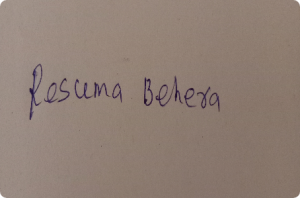 Resuma Behera